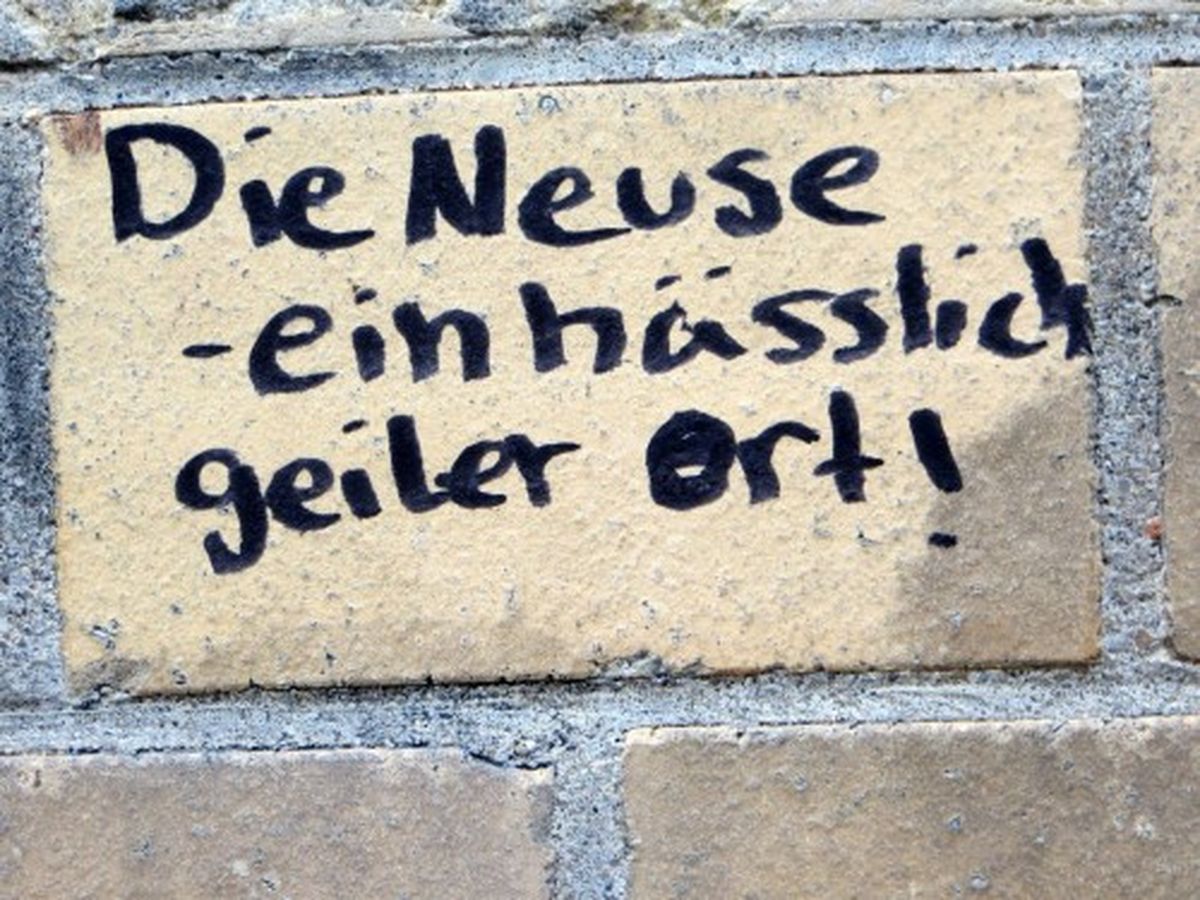 Die Neuse
-ein hässlich
geiler Ort!